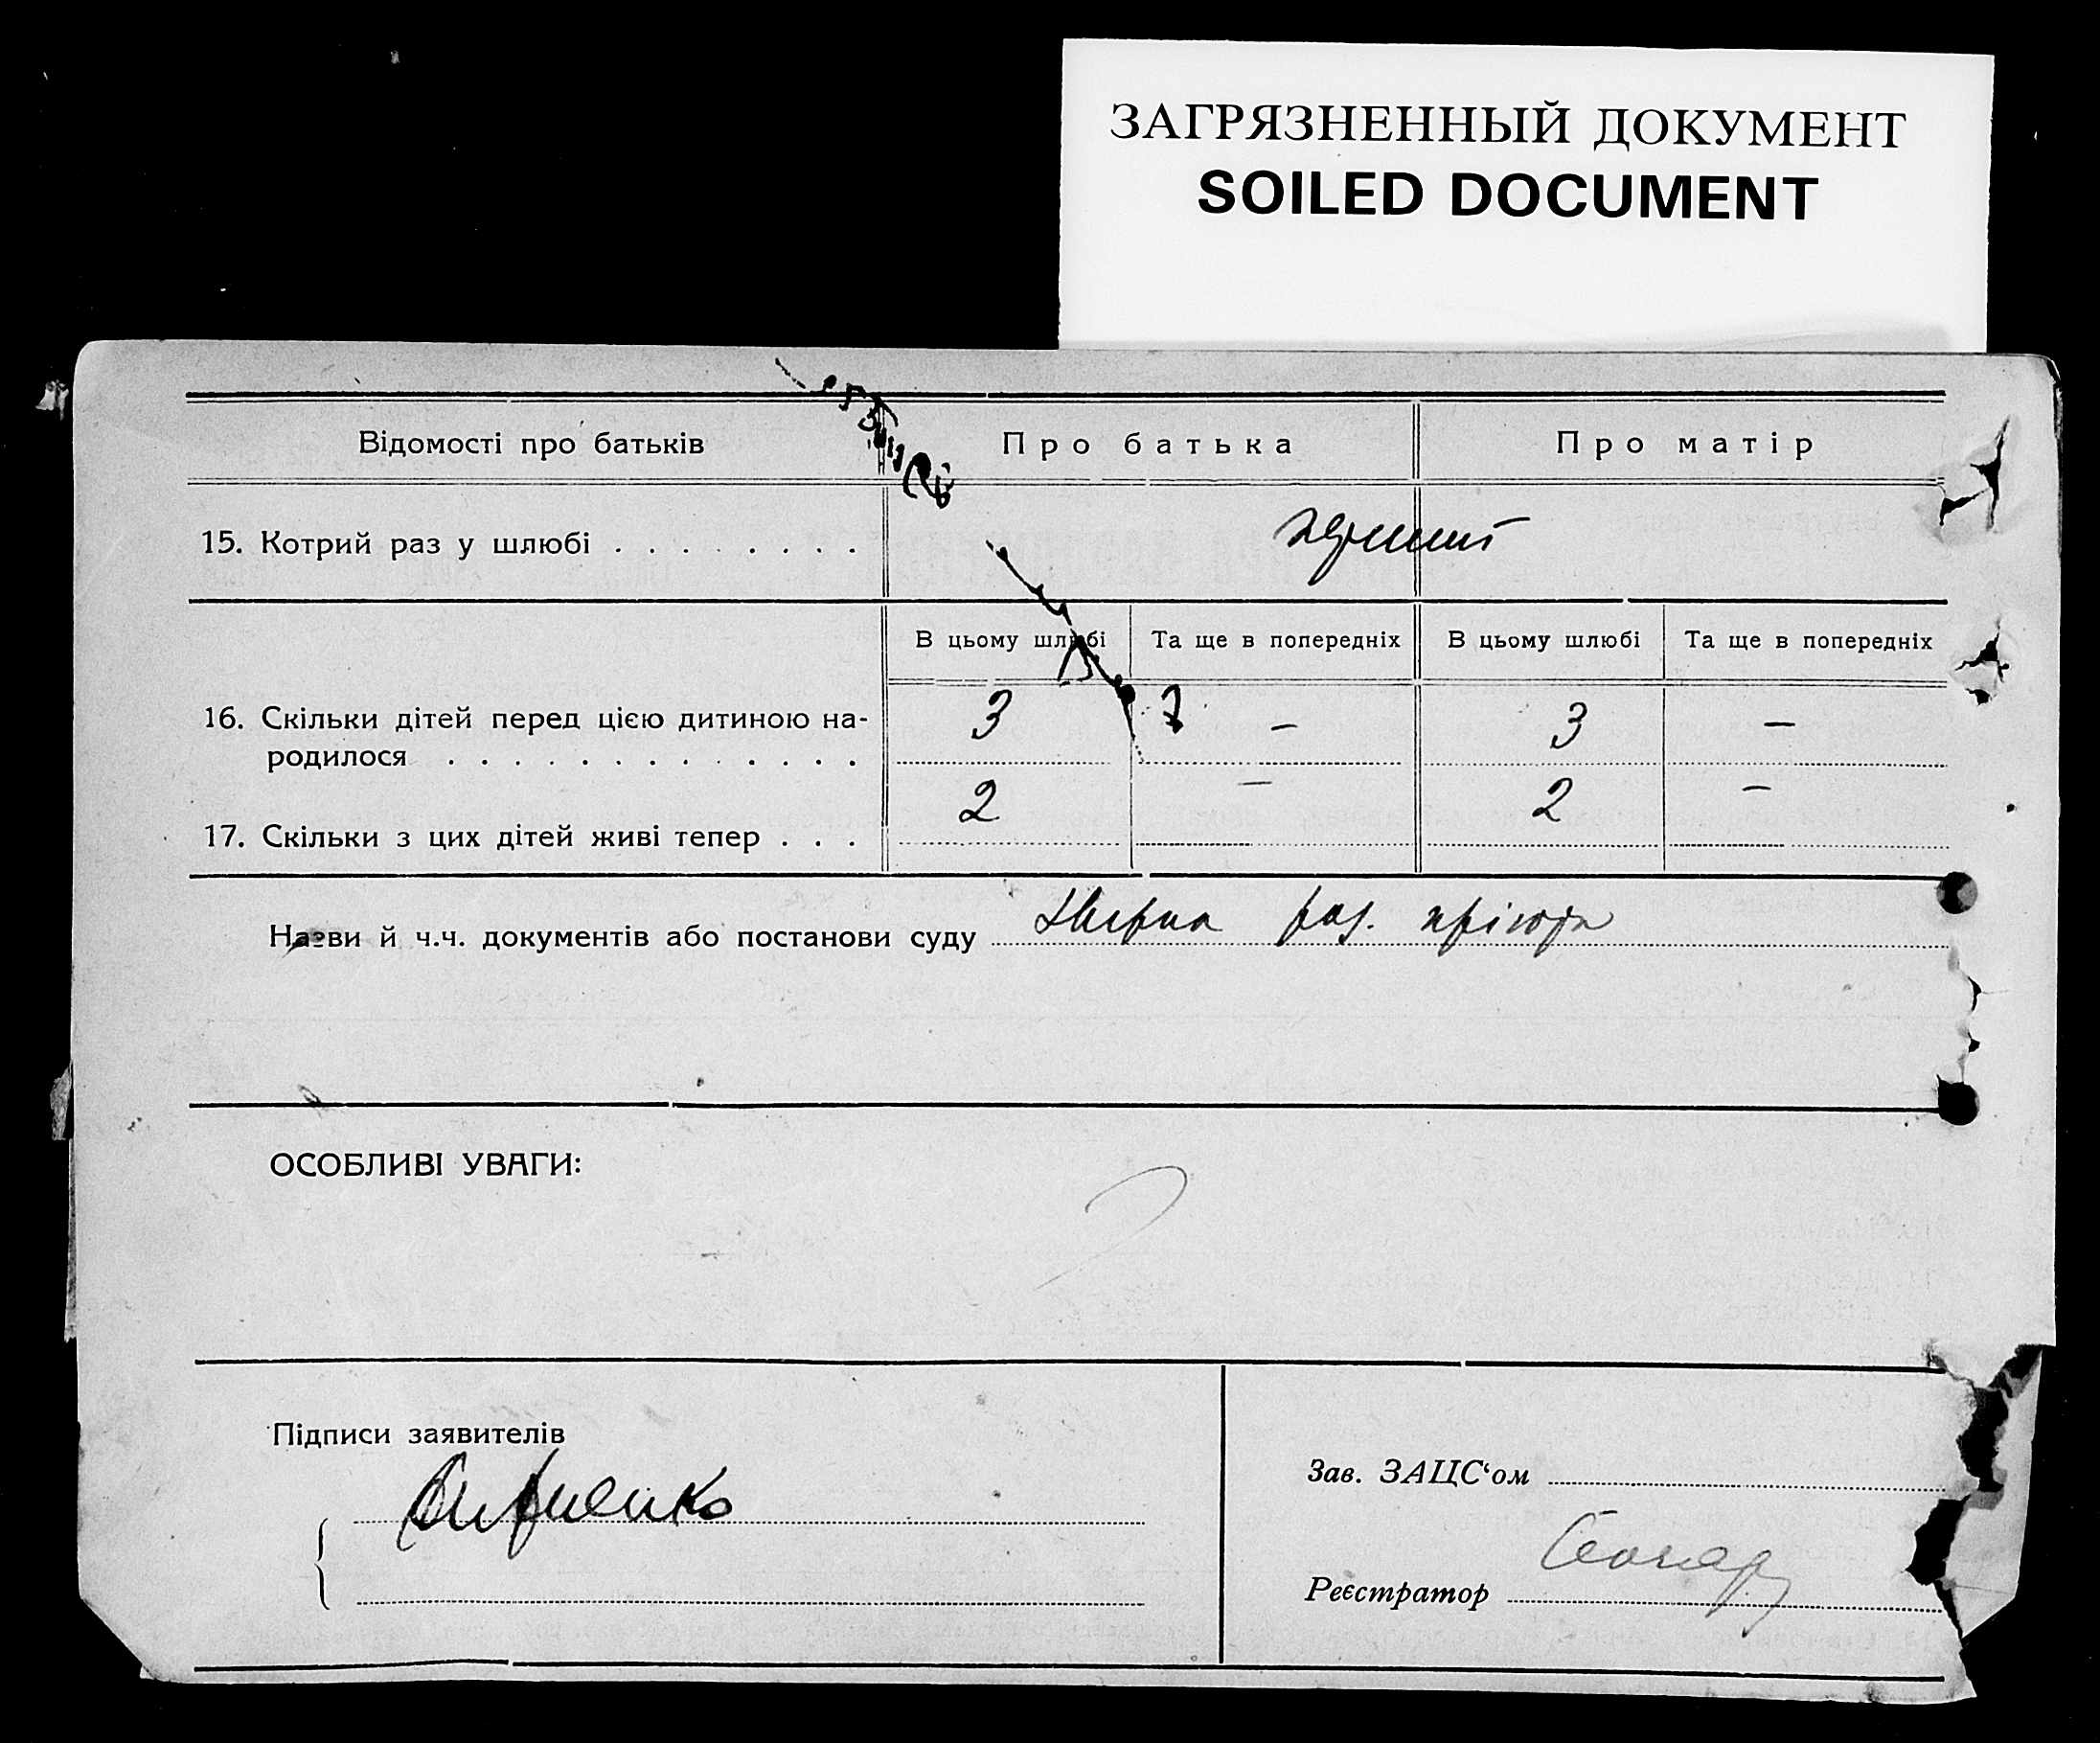 ЗАГРЯЗНЕННЫЙ ДОКУМЕНТ
SOILED DOCUMENT
Відомості про батьків Про батька Про матір
15. Котрий раз у шлюбі . . . . . . . .
В цьому шлюбі Та ще в попередніх В цьому шлюбі Та ще в попередніх
16. Скільки дітей перед цією дитиною на- 3 – 3 –
родилося . . . . . . . . . . . . .
17. Скільки з цих дітей живі тепер . . . 2 – 2 –
Назви й ч.ч. документів або постанови суду
ОСОБЛИВІ УВАГИ:
Підписи заявителів
Зав. ЗАЦС‘ом
Реєстратор